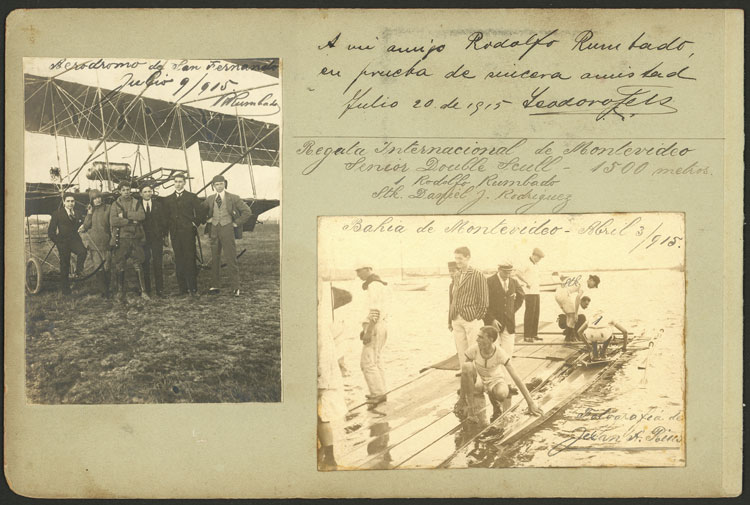 Aerodromo de San Fernando
Julio 9/915
RRumbado
A mi amigo Rodolfo Rumbado,
en prueba de sincera amistad
Julio 20 de 1915 Teodoro Fels
Regata Internacional de Montevideo
Senior Double Scull - 1500 metros.
1 Rodolfo Rumbado
Stk. Daniel J. Rodriguez
Bahia de Montevideo - Abril 3/915.
Stk
1
Fotografia de
Juan A.